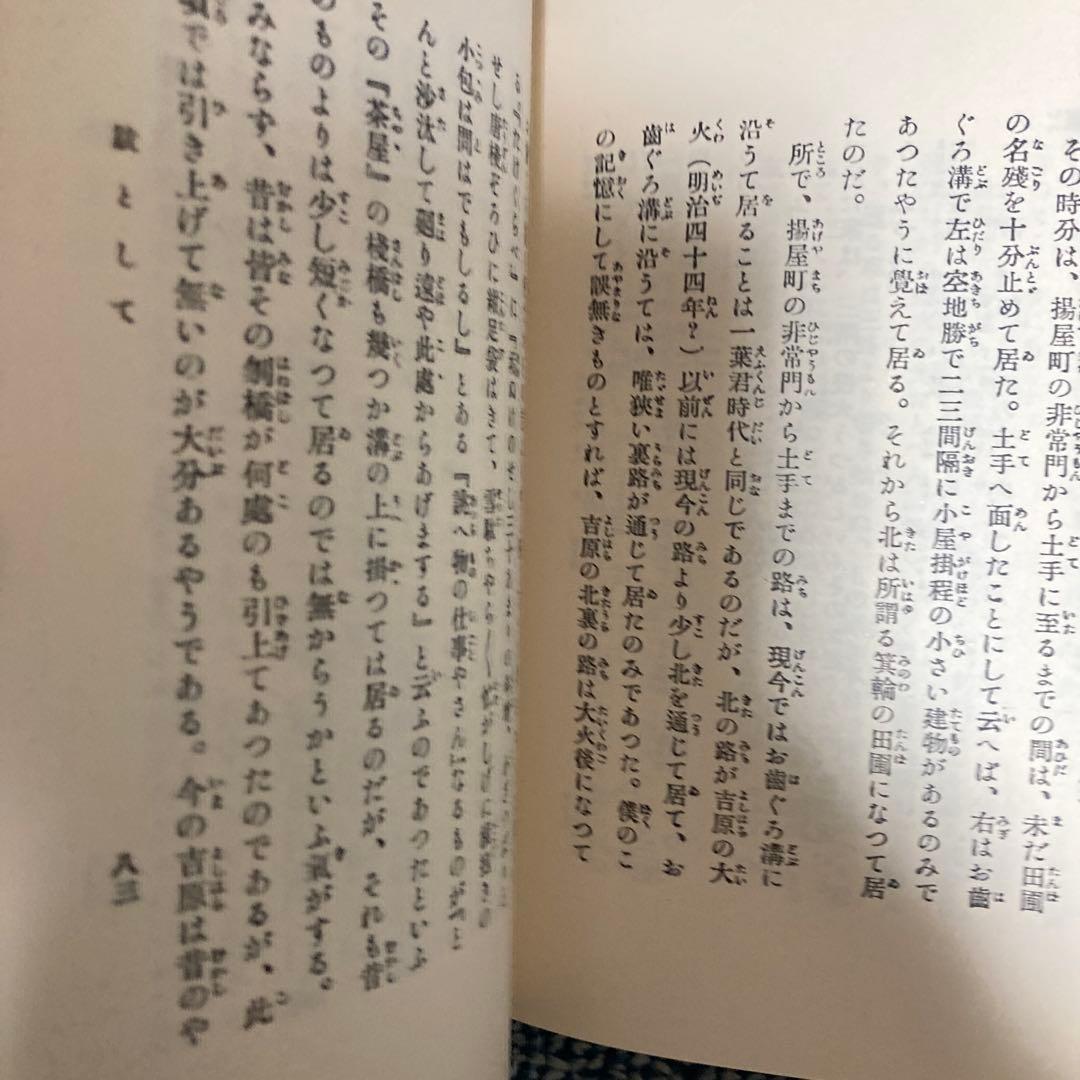 その時分は、揚屋町の非常門から土手に至るまでの間は、未だ田圃
の名殘を十分止めて居た。土手へ面したことにして云へば、右はお齒
ぐろ溝で左は空地勝で二三間隔に小屋掛程の小さい建物があるのみで
あつたやうに覺えて居る。それから北は所謂る箕輪の田圃になつて居
たのだ。
所で、揚屋町の非常門から土手までの路は、現今ではお齒ぐろ溝に
沿うて居ることは一葉君時代と同じであるのだが、北の路が吉原の大
火（明治四十四年？）以前には現今の路より少し北を通じて居て、お
齒ぐろ溝に沿うては、唯狹い裏路が通じて居たのみであつた。僕のこ
の記憶にして誤無きものとすれば、吉原の北裏の路は大火後になつて
せし唐棧ぞろひに
小包は問はでもしるし』とある『誂へ物の仕事やさん』なるものがつと
んと沙汰して廻り遠や此處からあげまする』と云ふのであつたといふ
その『茶屋』の棧橋も幾つか溝の上に掛つては居るのだが、それも昔
のものよりは少し短くなつて居るのでは無からうかといふ氣がする。
みならず、昔は皆その刎橋が何處のも引上てあつたのであるが、此
頃では引き上げて無いのが大分あるやうである。今の吉原は昔のや
跋として
八三